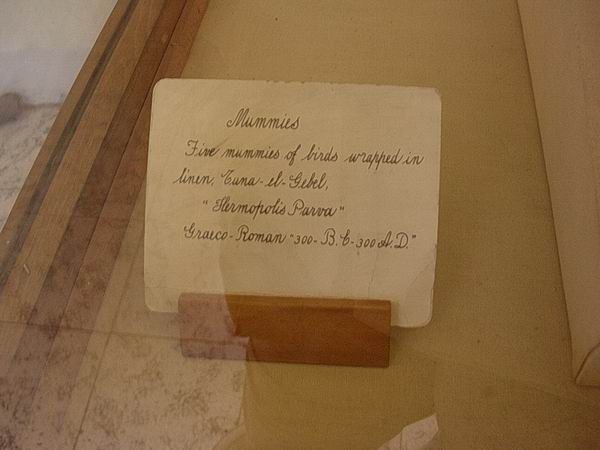 Mummies
Five mummies of birds wrapped in
linen, Tuna-el-Gebel,
"Hermopolis Parva"
Graeco-Roman "300-B.C-300 A.D."